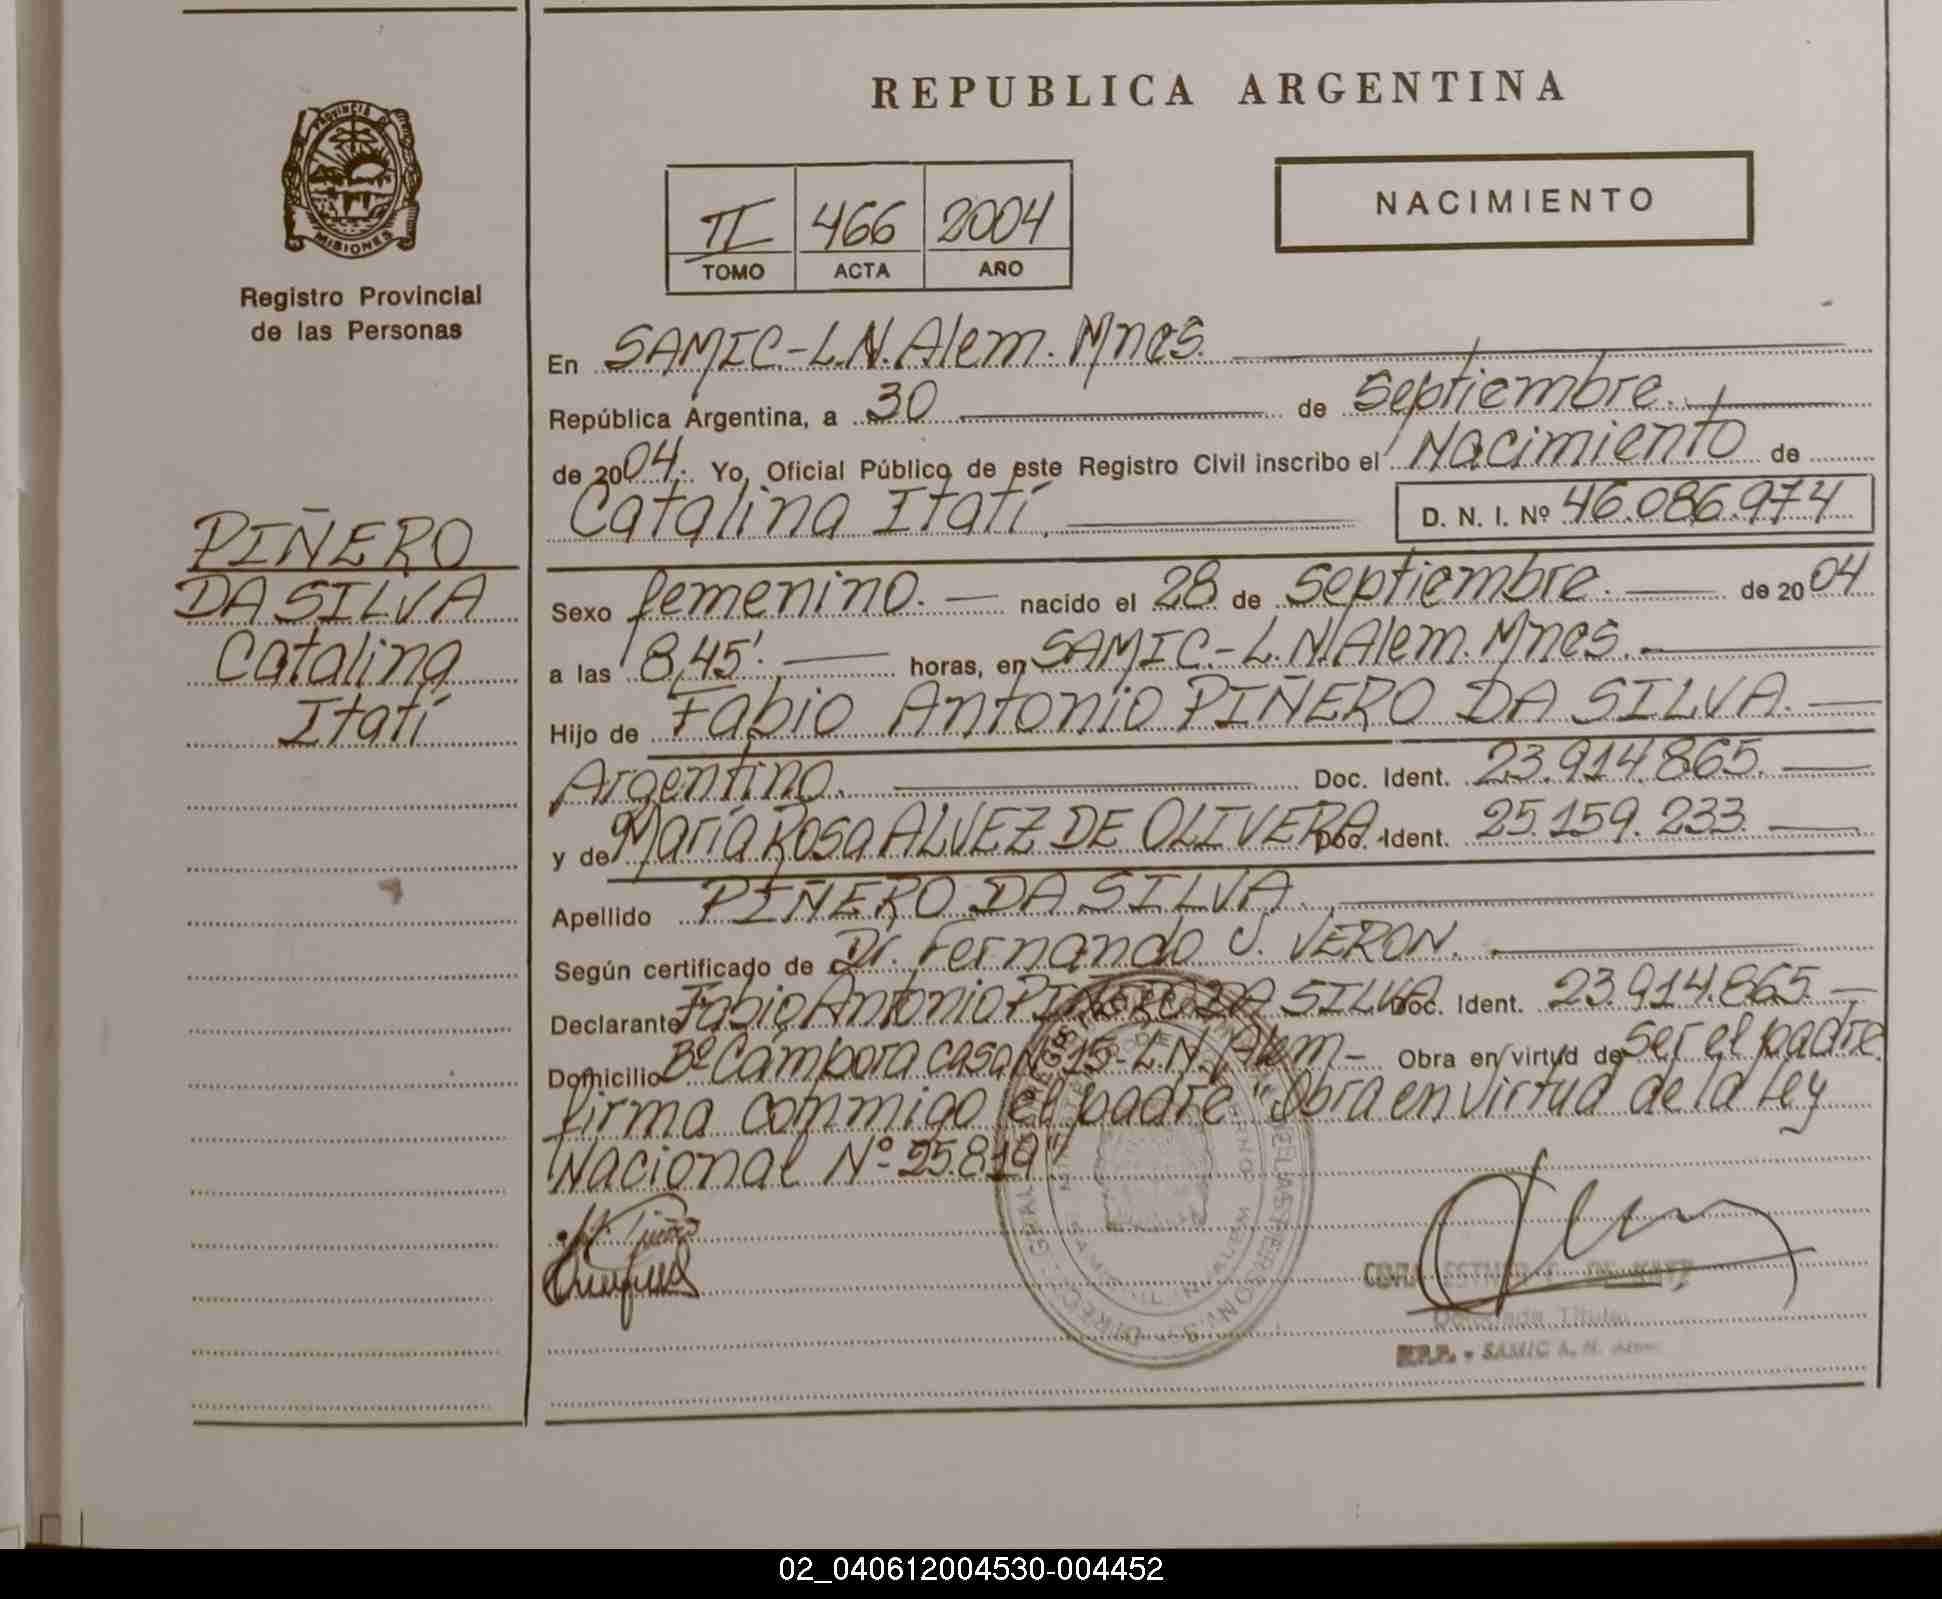 REPUBLICA ARGENTINA
PROVINCIA DE
MISIONES
Registro Provincial
de las Personas
II 466 2004
TOMO ACTA AÑO
NACIMIENTO
PIÑERO
DA SILVA
Catalina
Itatí
En SAMIC-L.N.Alem. Mnes.
República Argentina, a 30 de Septiembre.
de 2004. Yo, Oficial Público de este Registro Civil inscribo el Nacimiento de
Catalina Itatí. D. N. I. Nº 46.086.974
Sexo femenino. nacido el 28 de Septiembre. de 2004
a las 8,45'. horas, en SAMIC.-L.N.Alem. Mnes.
Hijo de Fabio Antonio PIÑERO DA SILVA.
Argentino. Doc. Ident. 23.914.865.
y de María Rosa ALVEZ DE OLIVERA Doc. Ident. 25.159.233
Apellido PIÑERO DA SILVA.
Según certificado de Dr. Fernando J. VERON.
Declarante Fabio Antonio PIÑERO DA SILVA Doc. Ident. 23.914.865.
Domicilio Bº Cámpora casa Nº 15-L.N. Alem- Obra en virtud de ser el padre.
firma conmigo el padre "Obra en virtud de la Ley
Nacional Nº 25.819"
Titular
R.P.P. - SAMIC L. N. Alem
02_040612004530-004452